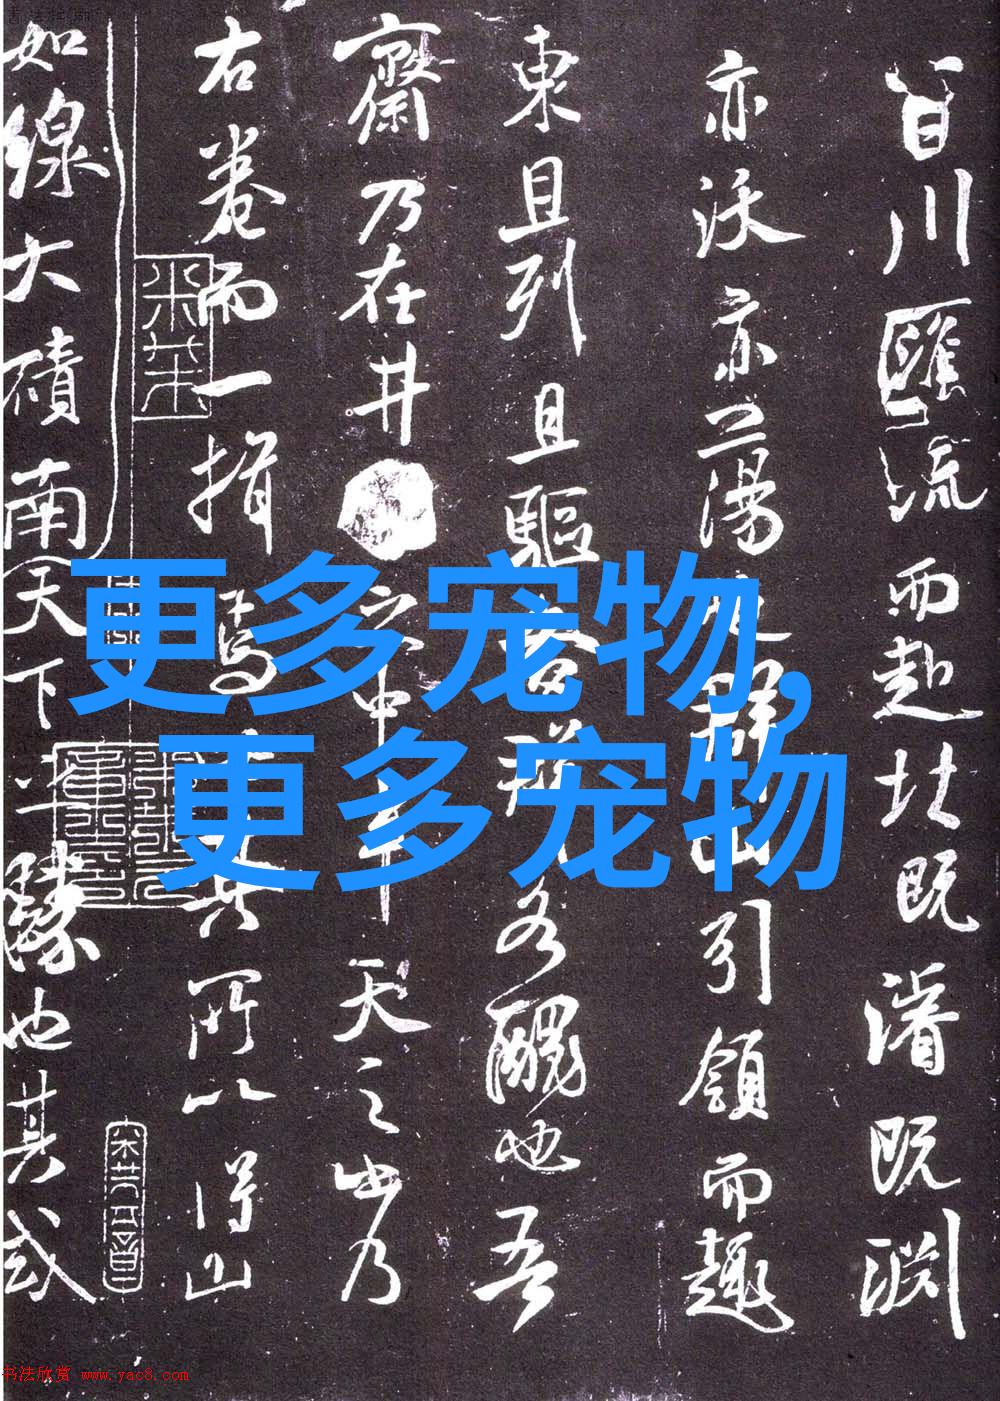 更多宠物,
更多宠物
百川匯流而赴北既濬既淵
亦沃亦蕩引領而趣
東且列且驅各醜也吾
齋乃在井中天之出乃
右卷而一指焉其所以得山
如線大磧南天下也其或
书法欣赏 www.yac8.com